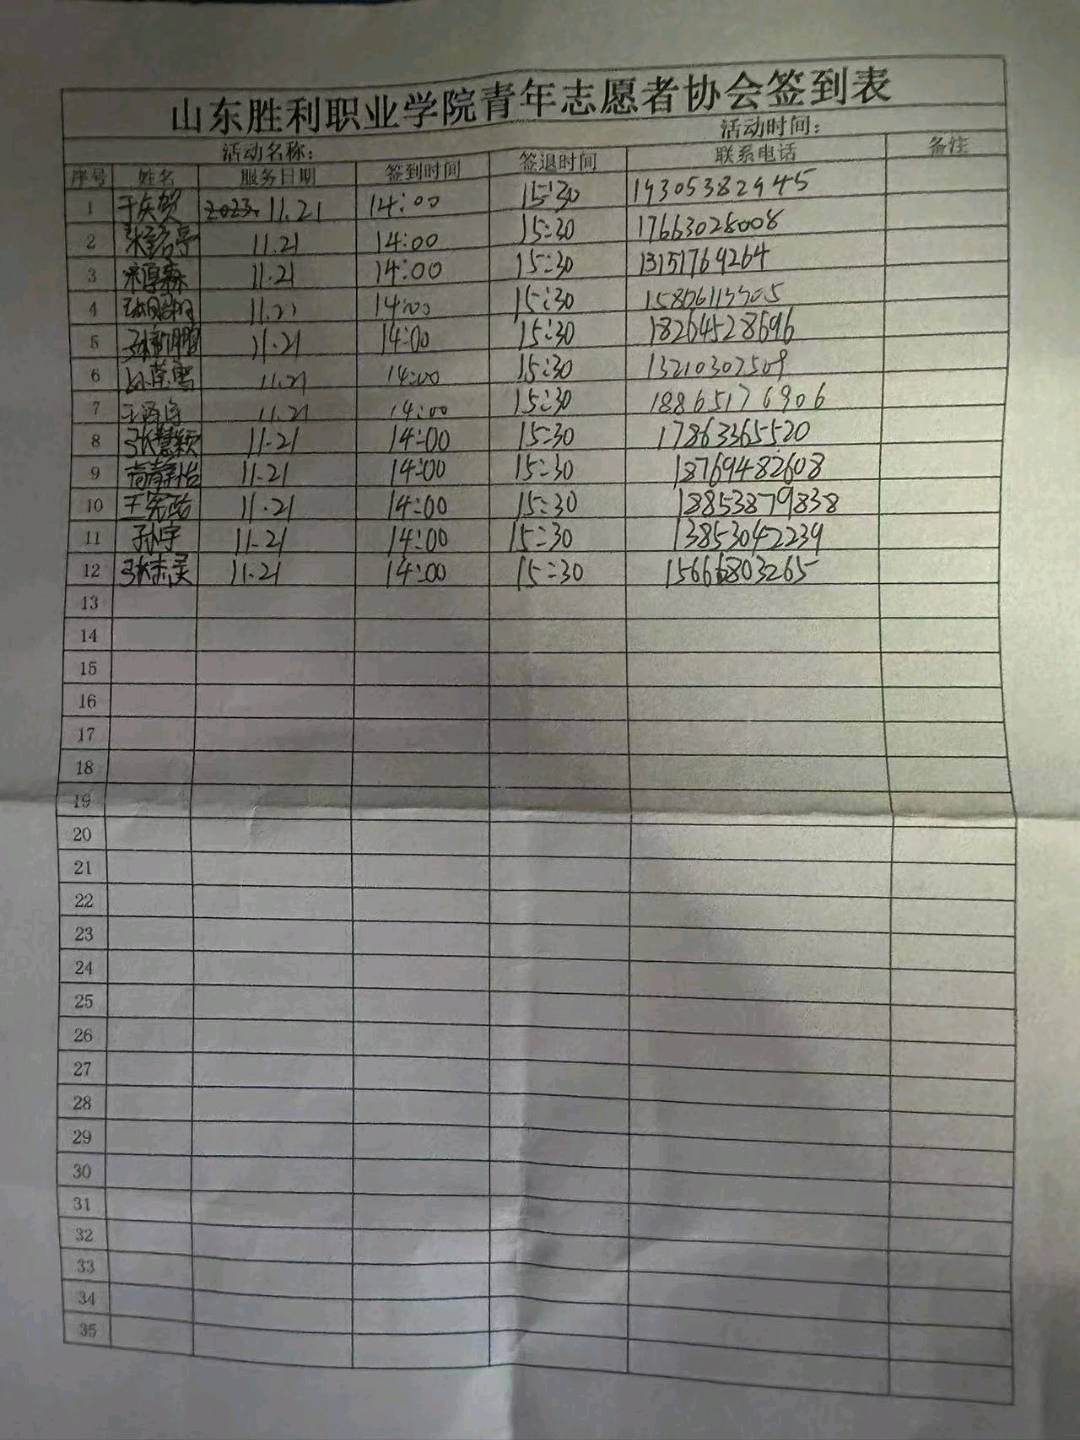 山东胜利职业学院青年志愿者协会签到表
活动名称： 活动时间：
序号 姓名 服务日期 签到时间 签退时间 联系电话 备注
1 于庆贺 2023.11.21 14:00 15:30 19305382945
2 11.21 14:00 15:30 17663028008
3 11.21 14:00 15:30 13151769264
4 14:00 15:30
5 11.21 14:00 15:30 18264528696
6 11.21 14:00 15:30 13210302509
7 11.21 14:00 15:30 18865176906
8 张慧颖 11.21 14:00 15:30 17863365520
9 11.21 14:00 15:30 18769482608
10 11.21 14:00 15:30 18853879838
11 孙宇 11.21 14:00 15:30 13853042239
12 11.21 14:00 15:30 15666803265
13
14
15
16
17
18
19
20
21
22
23
24
25
26
27
28
29
30
31
32
33
34
35